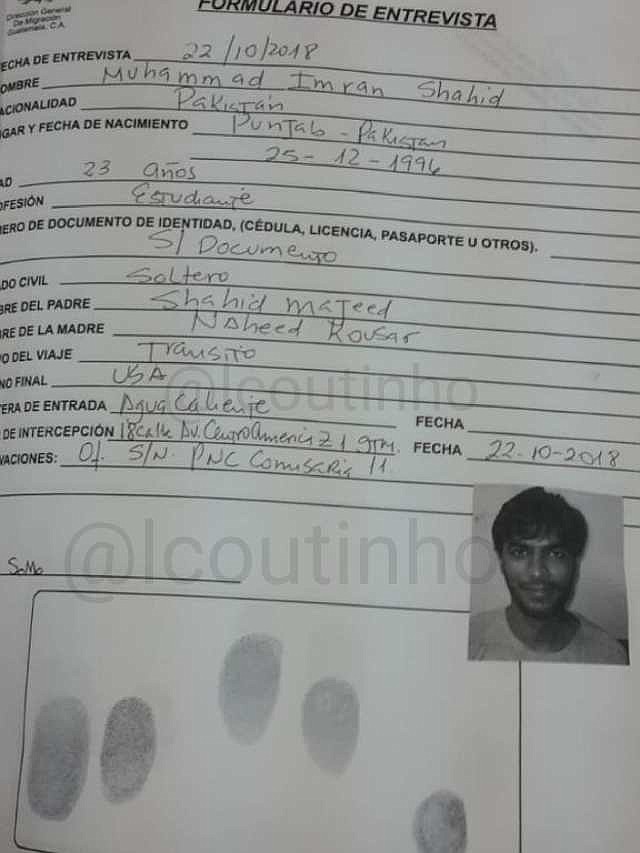 Dirección General
De Migración
Guatemala, C.A.
FORMULARIO DE ENTREVISTA
ECHA DE ENTREVISTA 22/10/2018
OMBRE Muhammad Imran Shahid
ACIONALIDAD Pakistán
GAR Y FECHA DE NACIMIENTO Puntab - Pakistan
25-12-1996
AD 23 años
OFESIÓN Estudiante
ERO DE DOCUMENTO DE IDENTIDAD, (CÉDULA, LICENCIA, PASAPORTE U OTROS).
S/ Documento
DO CIVIL Soltero
BRE DEL PADRE Shahid Mateed
RE DE LA MADRE Naheed Kousar
O DEL VIAJE Transito
NO FINAL USA
@lcoutinho
ERA DE ENTRADA Agua Caliente FECHA
DE INTERCEPCIÓN 18 calle Av. Centro America Z 1 gtm. FECHA 22-10-2018
VACIONES: S/N. PNC Comisaria 11.
@lcoutinho